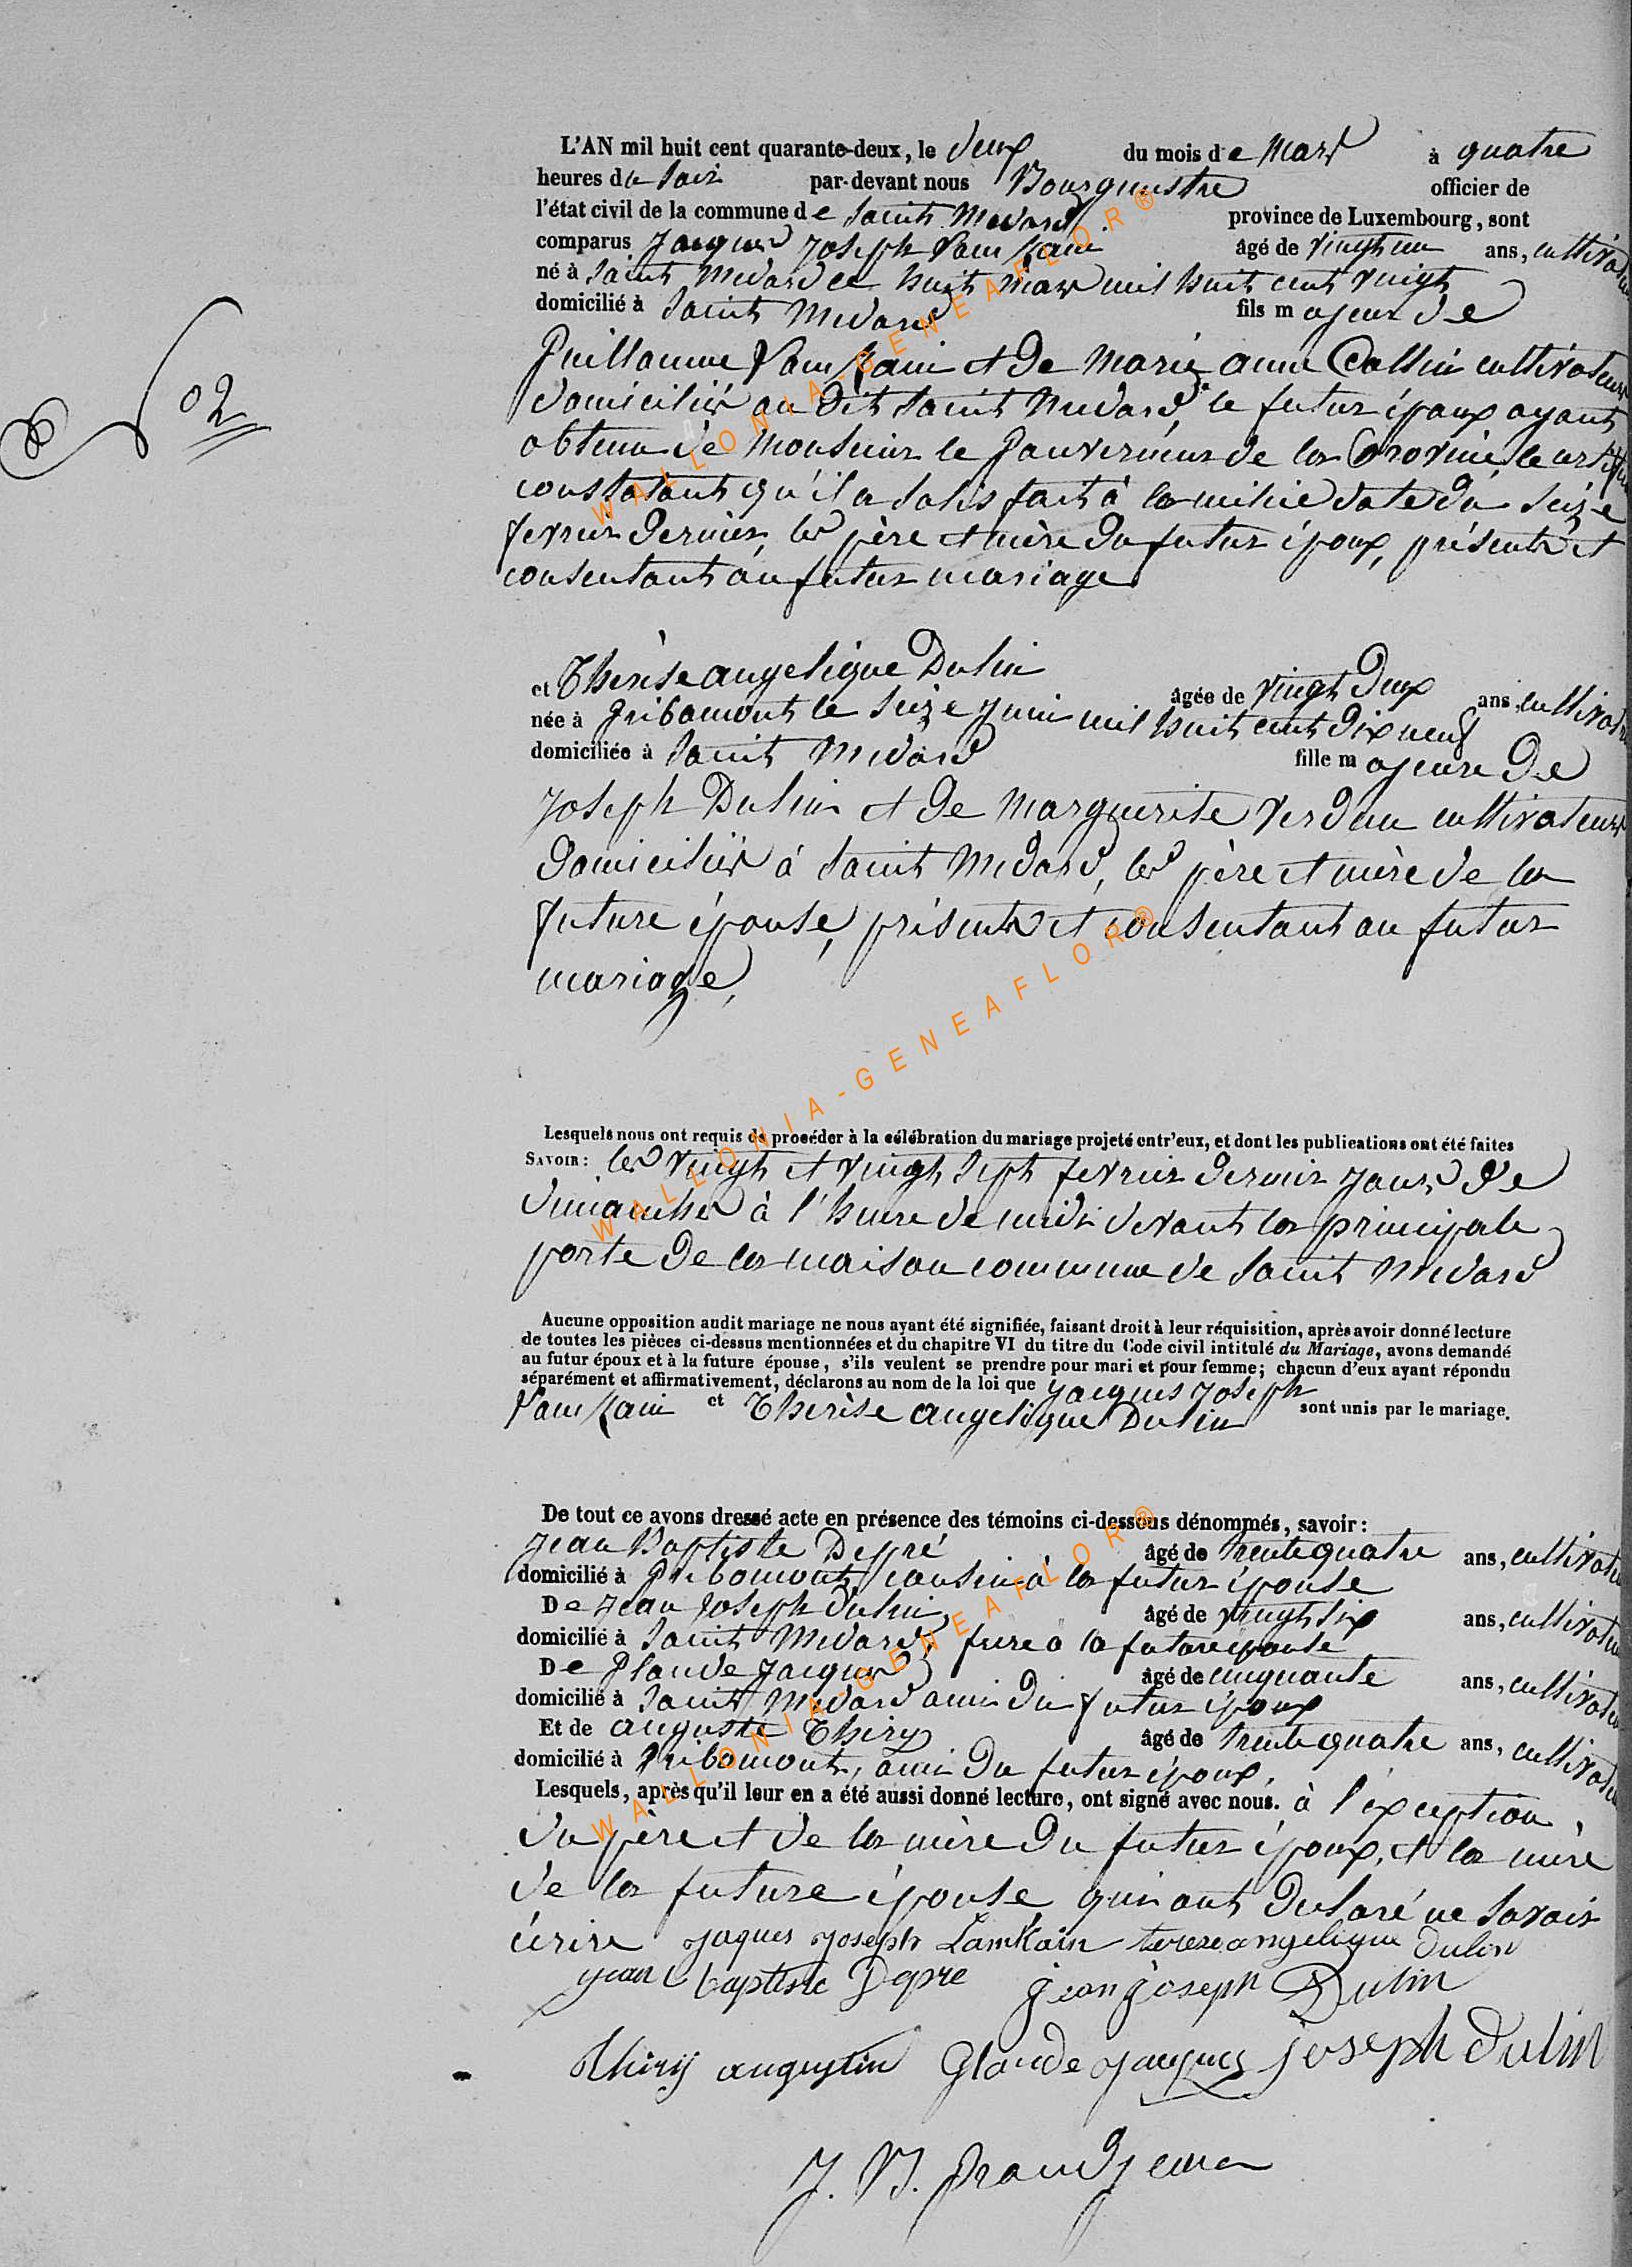 L'AN mil huit cent quarante-deux, le deux du mois de Mars à quatre
heures du soir par-devant nous Bourguestre officier de
l'état civil de la commune de Saint Médard province de Luxembourg, sont
comparus Jacques Joseph Lamkain âgé de vingt un ans, cultivateur
né à Saint Médard le huit Mars mil huit cent vingt
domicilié à Saint Médard fils majeur de
Guillaume Lamkain et de Marie anne Collin cultivateurs
domiciliés au dit Saint Médard, le futur époux ayant
obtenu de Monsieur le Gouverneur de la Province, le certificat
constatant qu'il a satisfait à la milice date du seize
fevrier dernier, les père et mère du futur époux, présents et
consentant au futur mariage
et Therèse angelique Dulin âgée de vingt deux ans, cultivatrice
née à Gribomont le seize juin mil huit cent dix neuf
domiciliée à Saint Médard fille majeure de
Joseph Dulin et de Marguerite Verdun cultivateurs
domiciliés à Saint Médard, les père et mère de la
future épouse, présents et consentant au futur
mariage,
Lesquels nous ont requis de procéder à la célébration du mariage projeté entr'eux, et dont les publications ont été faites
SAVOIR: les vingt et vingt sept fevrier dernier jours de
dimanches à l'heure de midi devant la principale
porte de la maison commune de Saint Médard
Aucune opposition audit mariage ne nous ayant été signifiée, faisant droit à leur réquisition, après avoir donné lecture
de toutes les pièces ci-dessus mentionnées et du chapitre VI du titre du Code civil intitulé du Mariage, avons demandé
au futur époux et à la future épouse, s'ils veulent se prendre pour mari et pour femme; chacun d'eux ayant répondu
séparément et affirmativement, déclarons au nom de la loi que Jacques Joseph
Lamkain et Therèse angelique Dulin sont unis par le mariage.
De tout ce avons dressé acte en présence des témoins ci-dessous dénommés, savoir:
Jean Baptiste Depré âgé de trente quatre ans, cultivateur
domicilié à Gribomont, cousin à la futur épouse
De Jean Joseph Dulin, âgé de vingt six ans, cultivateur
domicilié à Saint Médard, frere à la future épouse
De Glaude Jacques âgé de cinquante ans, cultivateur
domicilié à Saint Médard ami du futur époux
Et de auguste Thiry âgé de trente quatre ans, cultivateur
domicilié à Gribomont, ami du futur époux,
Lesquels, après qu'il leur en a été aussi donné lecture, ont signé avec nous. à l'exception,
du père et de la mère du futur époux, et la mère
de la future épouse, qui ont declaré ne savoir
écrire Jaques Joseph Lamkain terese angelique dulin
jean baptiste Depre jean joseph Dulin
thiry augustin Glaude jacques joseph dulin
J. B. Grandjean
No 2
WALLONIA-GENEAFLOR®
WALLONIA-GENEAFLOR®
WALLONIA-GENEAFLOR®